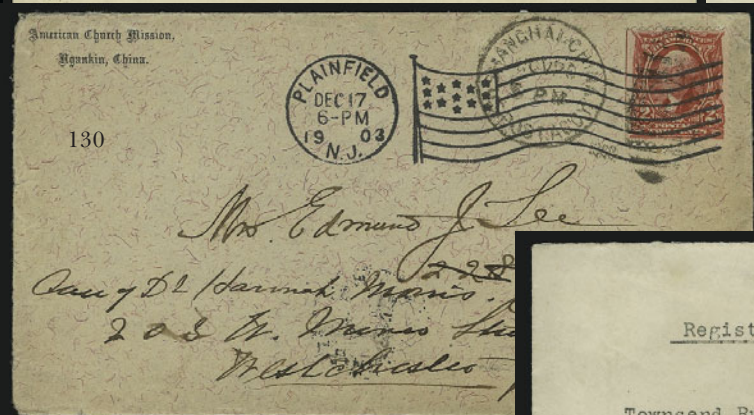 American Church Mission,
Ngankin, China.
130
PLAINFIELD
DEC 17
6-PM
19 03
N.J.
SHANGHAI, CH
PM
POSTAL
Mrs. Edmund J. Lee
228
Care of Dr Hannah
203 W. Miner
Westchester
Regist
Townsend